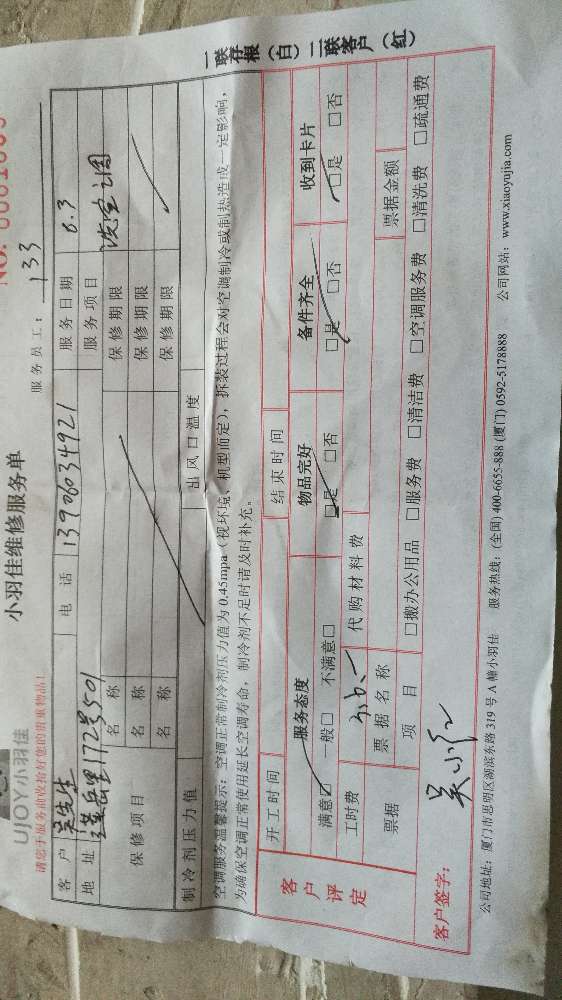 UJOY小羽佳
小羽佳维修服务单
请您于服务前收拾好您的贵重物品！
服务员工： 133
客户 吴先生 电话 13906034921 服务日期 6.3
地址 岳里172号501 服务项目 洗空调
保修项目 名称 保修期限
名称 保修期限
名称 保修期限
制冷剂压力值 出风口温度
空调服务温馨提示：空调正常制冷剂压力值为0.45mpa（视环境、机型而定），拆装过程会对空调制冷或制热造成一定影响，
为确保空调正常使用延长空调寿命，制冷剂不足时请及时补充。
一联存根（白）二联客户（红）
客户评定
开工时间 结束时间
服务态度 物品完好 备件齐全 收到卡片
满意☑ 一般□ 不满意□ ☑是 □否 ☑是 □否 ☑是 □否
工时费 代购材料费
票据 票据名称 票据金额
项目 □搬办公用品 □服务费 □清洁费 □空调服务费 □清洗费 □疏通费
客户签字： 吴小红
公司地址：厦门市思明区湖滨东路319号A幢小羽佳 服务热线：（全国）400-6655-888（厦门）0592-5178888 公司网站：www.xiaoyujia.com